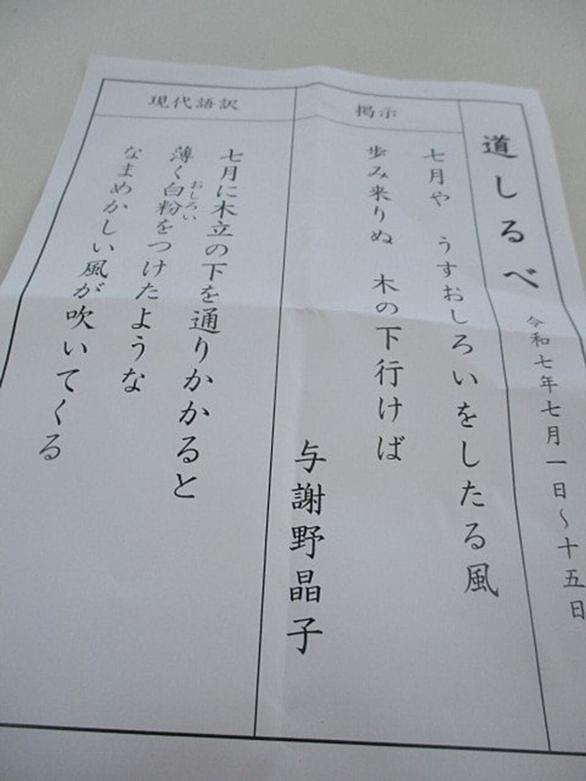 道しるべ 令和七年七月一日～十五日
掲示
七月や うすおしろいをしたる風
歩み来りぬ 木の下行けば
与謝野晶子
現代語訳
七月に木立の下を通りかかると
薄く白粉をつけたような
おしろい
なまめかしい風が吹いてくる